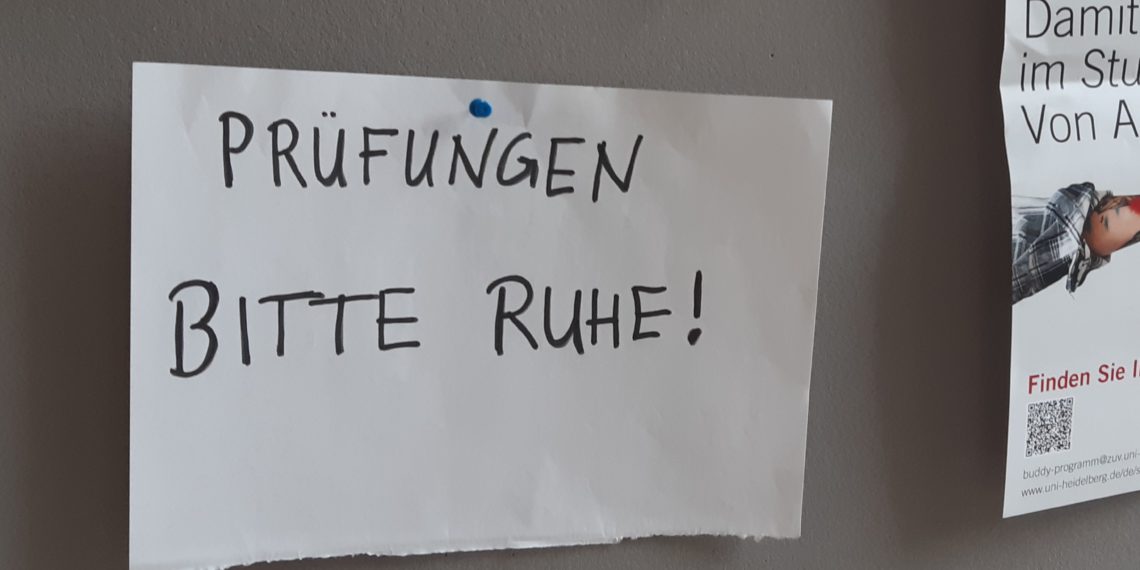 PRÜFUNGEN
BITTE RUHE!
Damit
im Stu
Von A
Finden Sie I
buddy-programm@zuv.uni-
www.uni-heidelberg.de/de/s